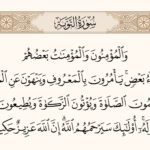 سورة التوبة
وَالْمُؤْمِنُونَ وَالْمُؤْمِنَاتُ بَعْضُهُمْ
أَوْلِيَاءُ بَعْضٍ يَأْمُرُونَ بِالْمَعْرُوفِ وَيَنْهَوْنَ عَنِ
وَيُقِيمُونَ الصَّلَاةَ وَيُؤْتُونَ الزَّكَاةَ وَيُطِيعُونَ
أُولَٰئِكَ سَيَرْحَمُهُمُ اللَّهُ إِنَّ اللَّهَ عَزِيزٌ حَكِيمٌ